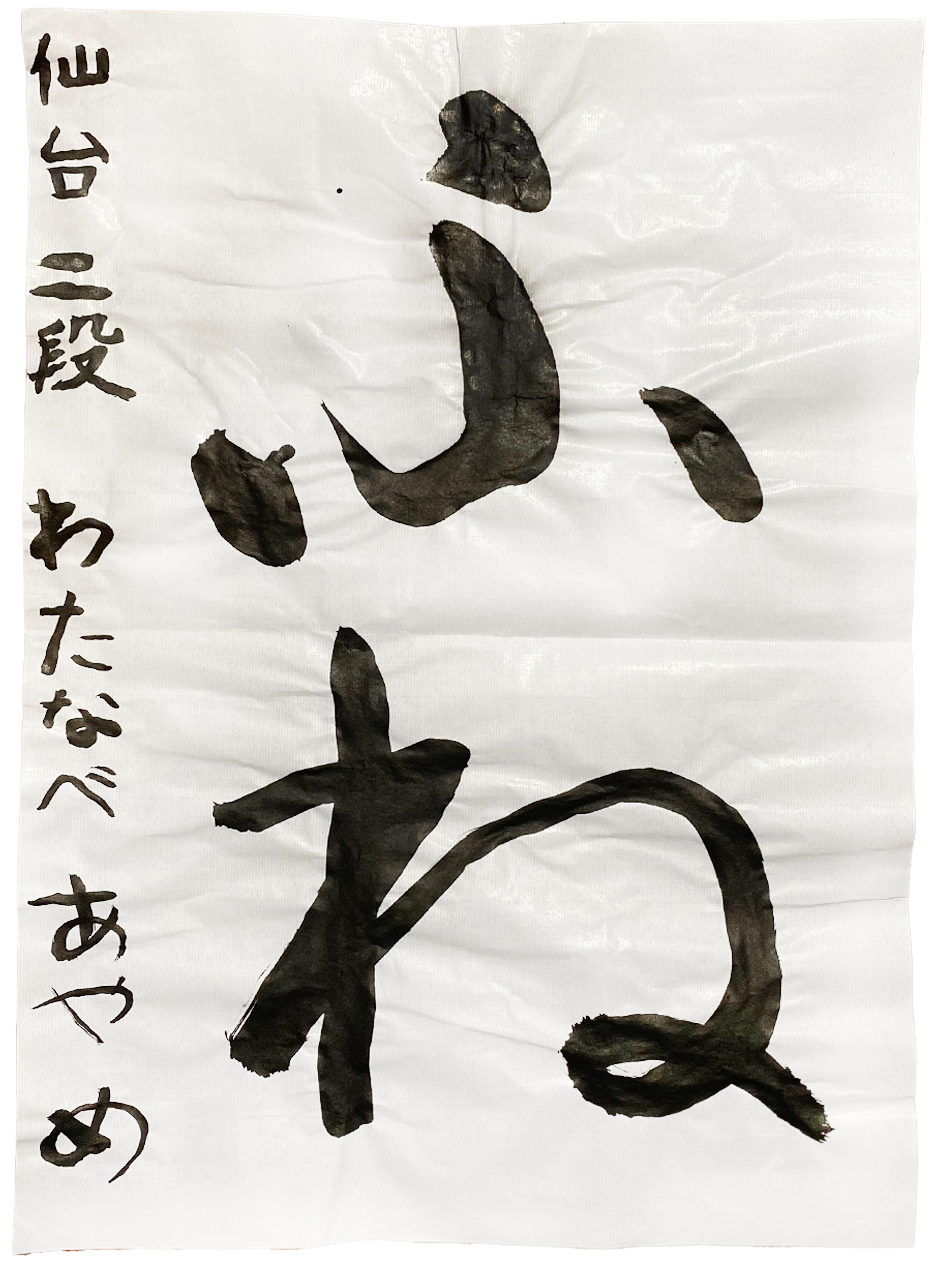 ふね
仙台 二段 わたなべ あやめ